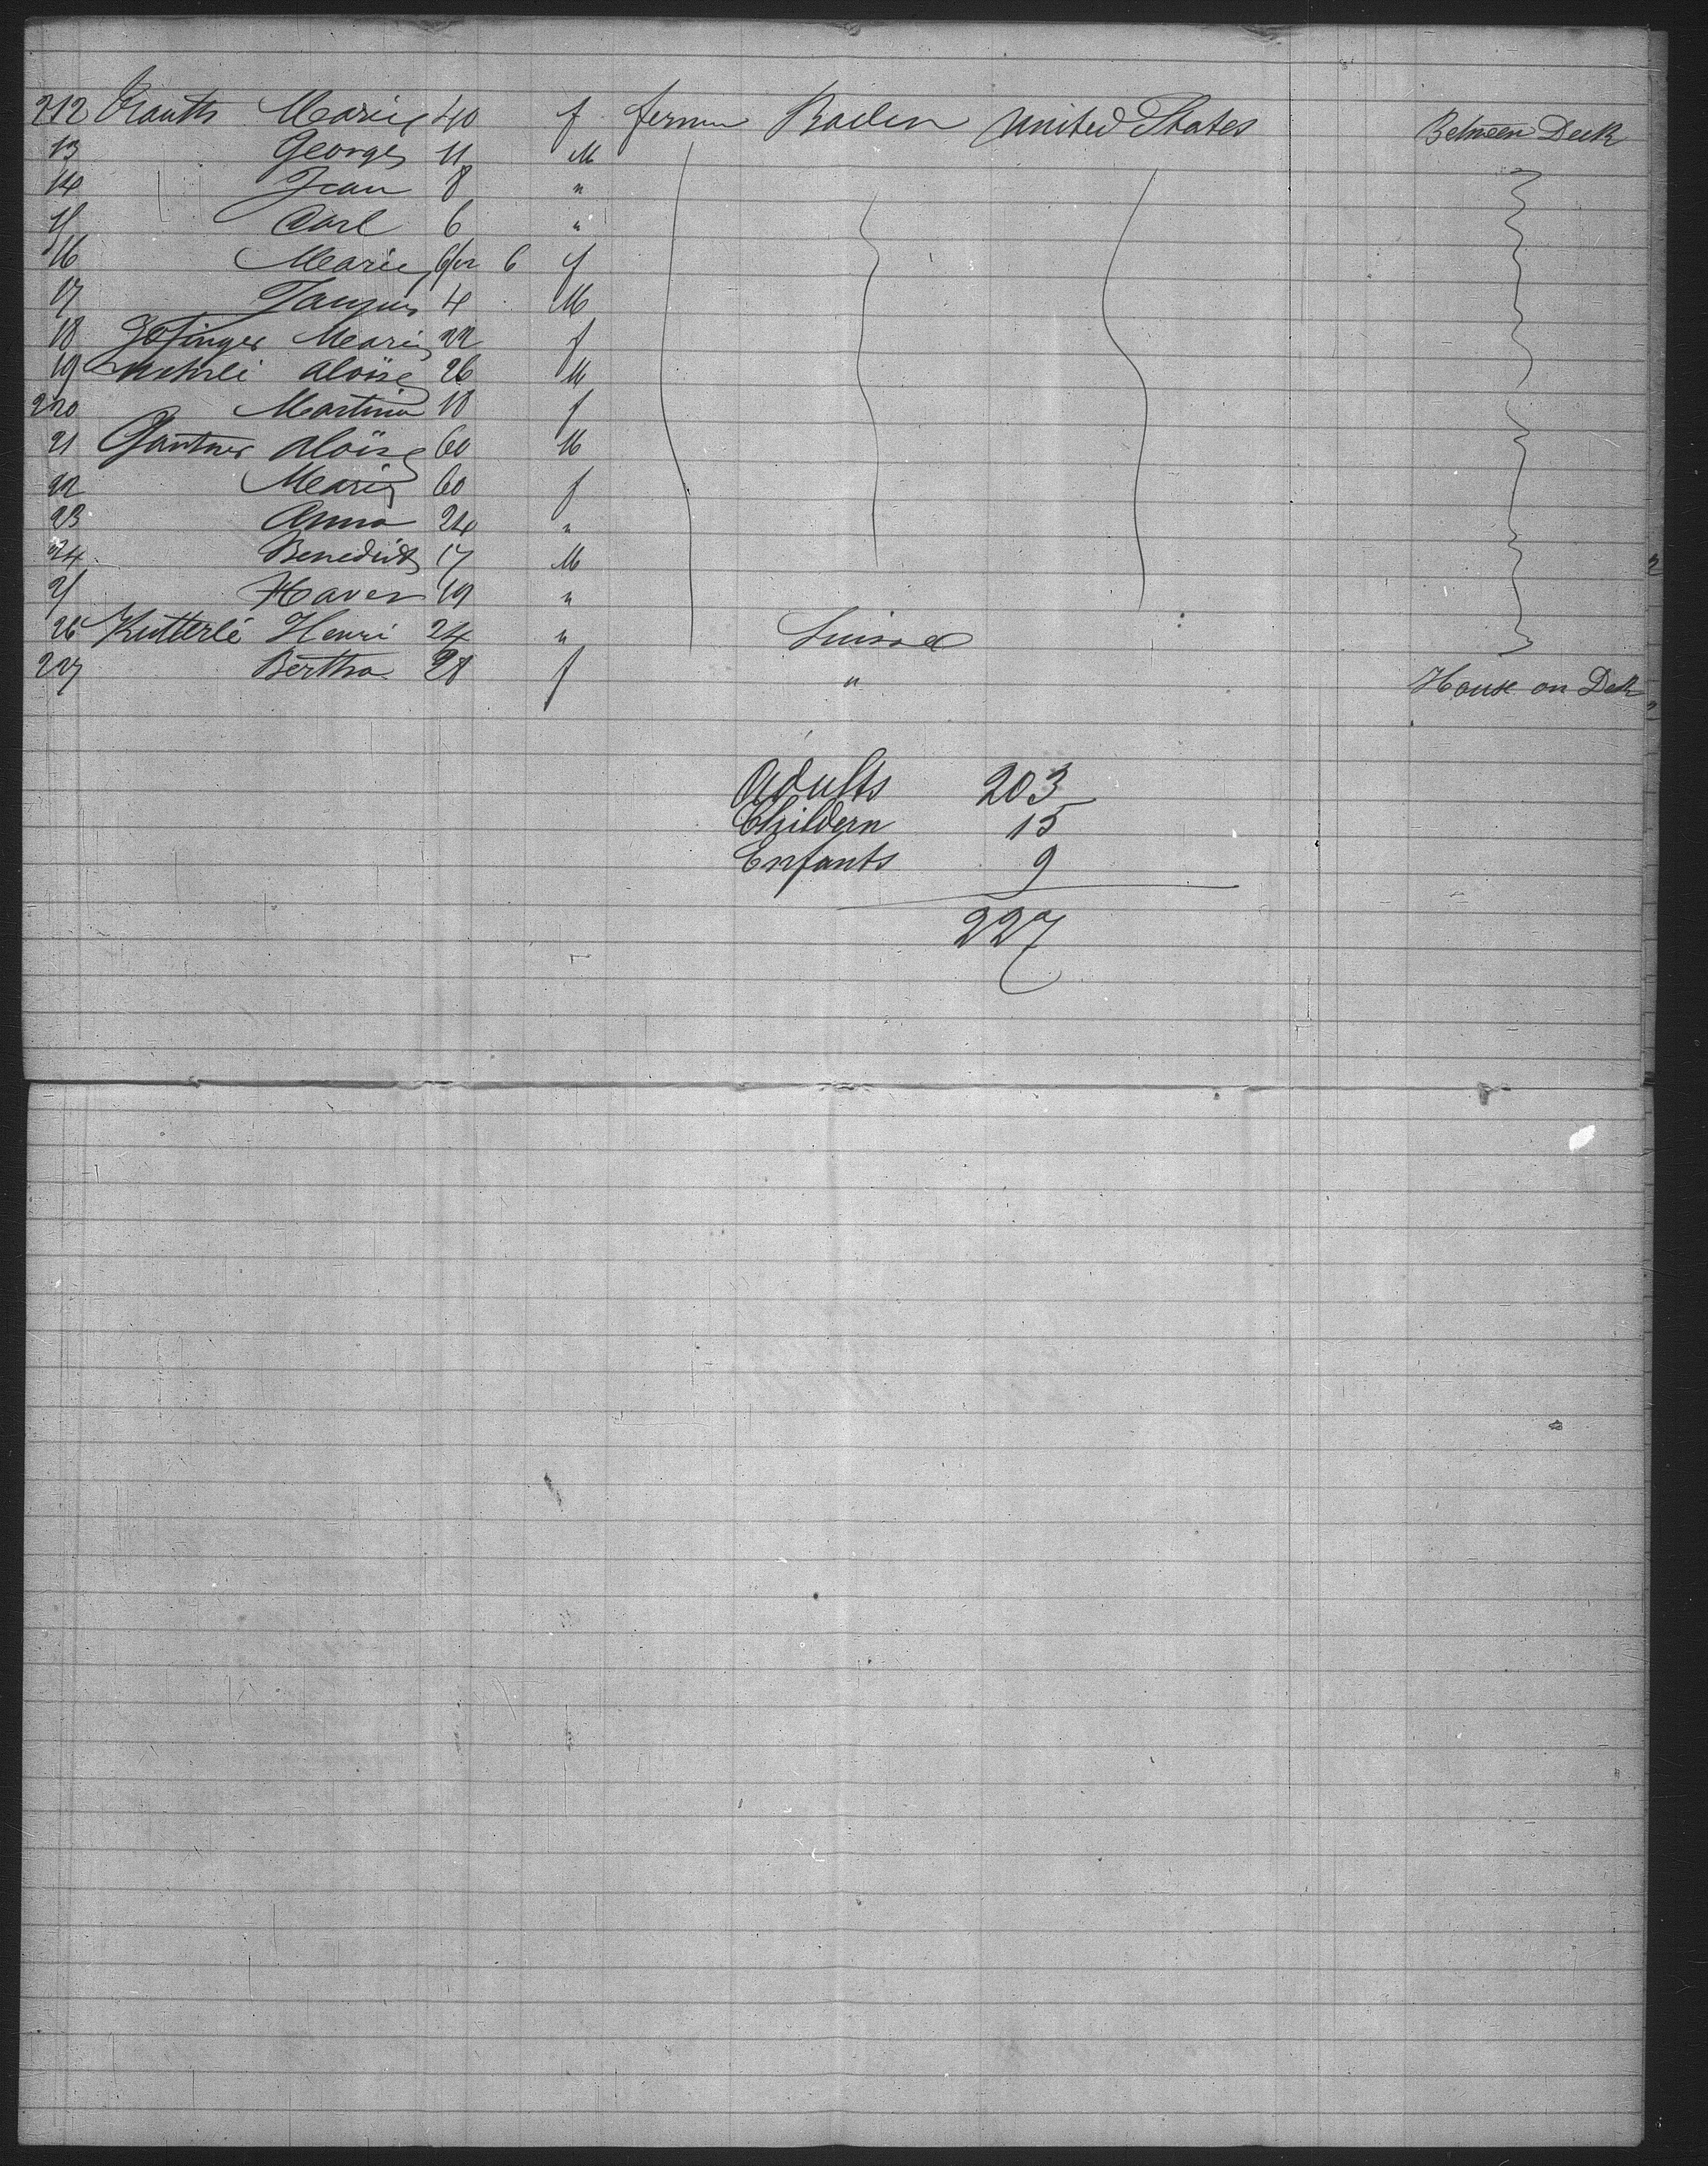 212 Marie 40 f Baden United States Between Deck
13 Georges 11 M
14 Jean 8 "
15 Carl 6 "
16 Marie 6/12 6 f
17 4 M
18 Marie 22 f
19 Aloïse 26 M
220 Martina 18 f
21 Gantner Aloïse 60 M
22 Marie 60 f
23 Anna 24 "
24 Benedict 17 M
25 Xaver 19 "
26 Kutterlé Henri 24 " Suisse
227 Bertha 28 f " House on Deck
Adults 203
Childern 15
Enfants 9
227